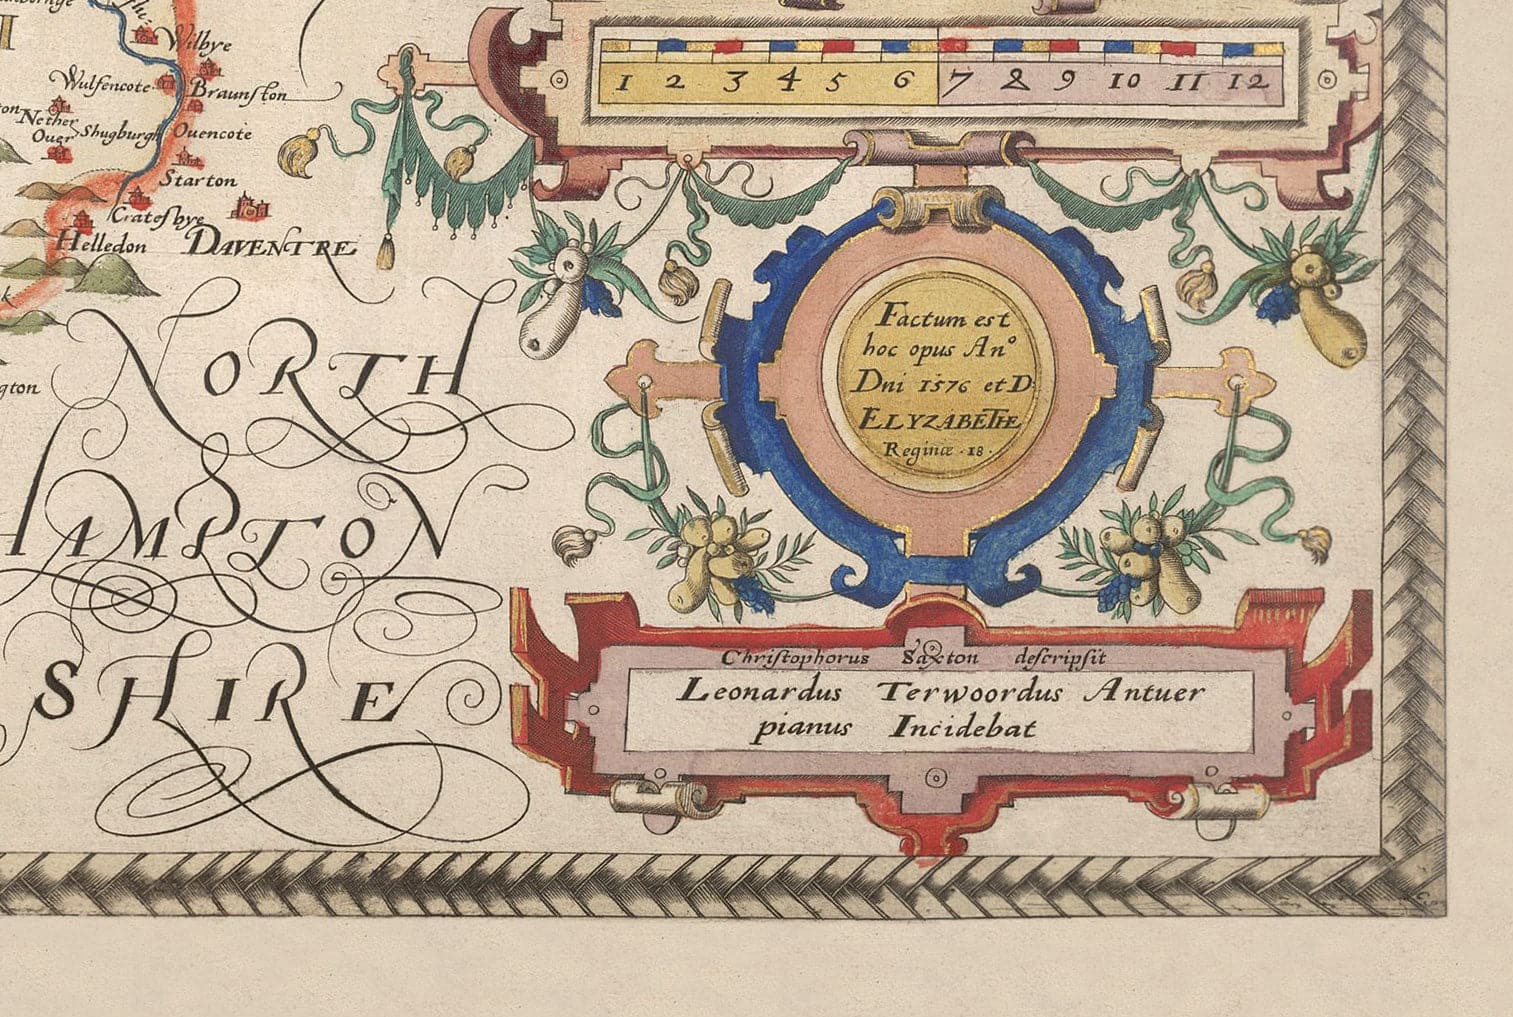 flu:
Wilbye
Wulfencote
Braunston
Nether
Ouer
Shugburgh
Ouencote
Starton
Catesbye
Helledon
DAVENTRE
NORTH
HAMPTON
SHIRE
1 2 3 4 5 6 7 8 9 10 11 12
Factum est
hoc opus Anº
Dni 1576 et D:
ELYZABETHÆ
Reginæ · 18 ·
Christophorus Saxton descripsit
Leonardus Terwoordus Antuer
pianus Incidebat